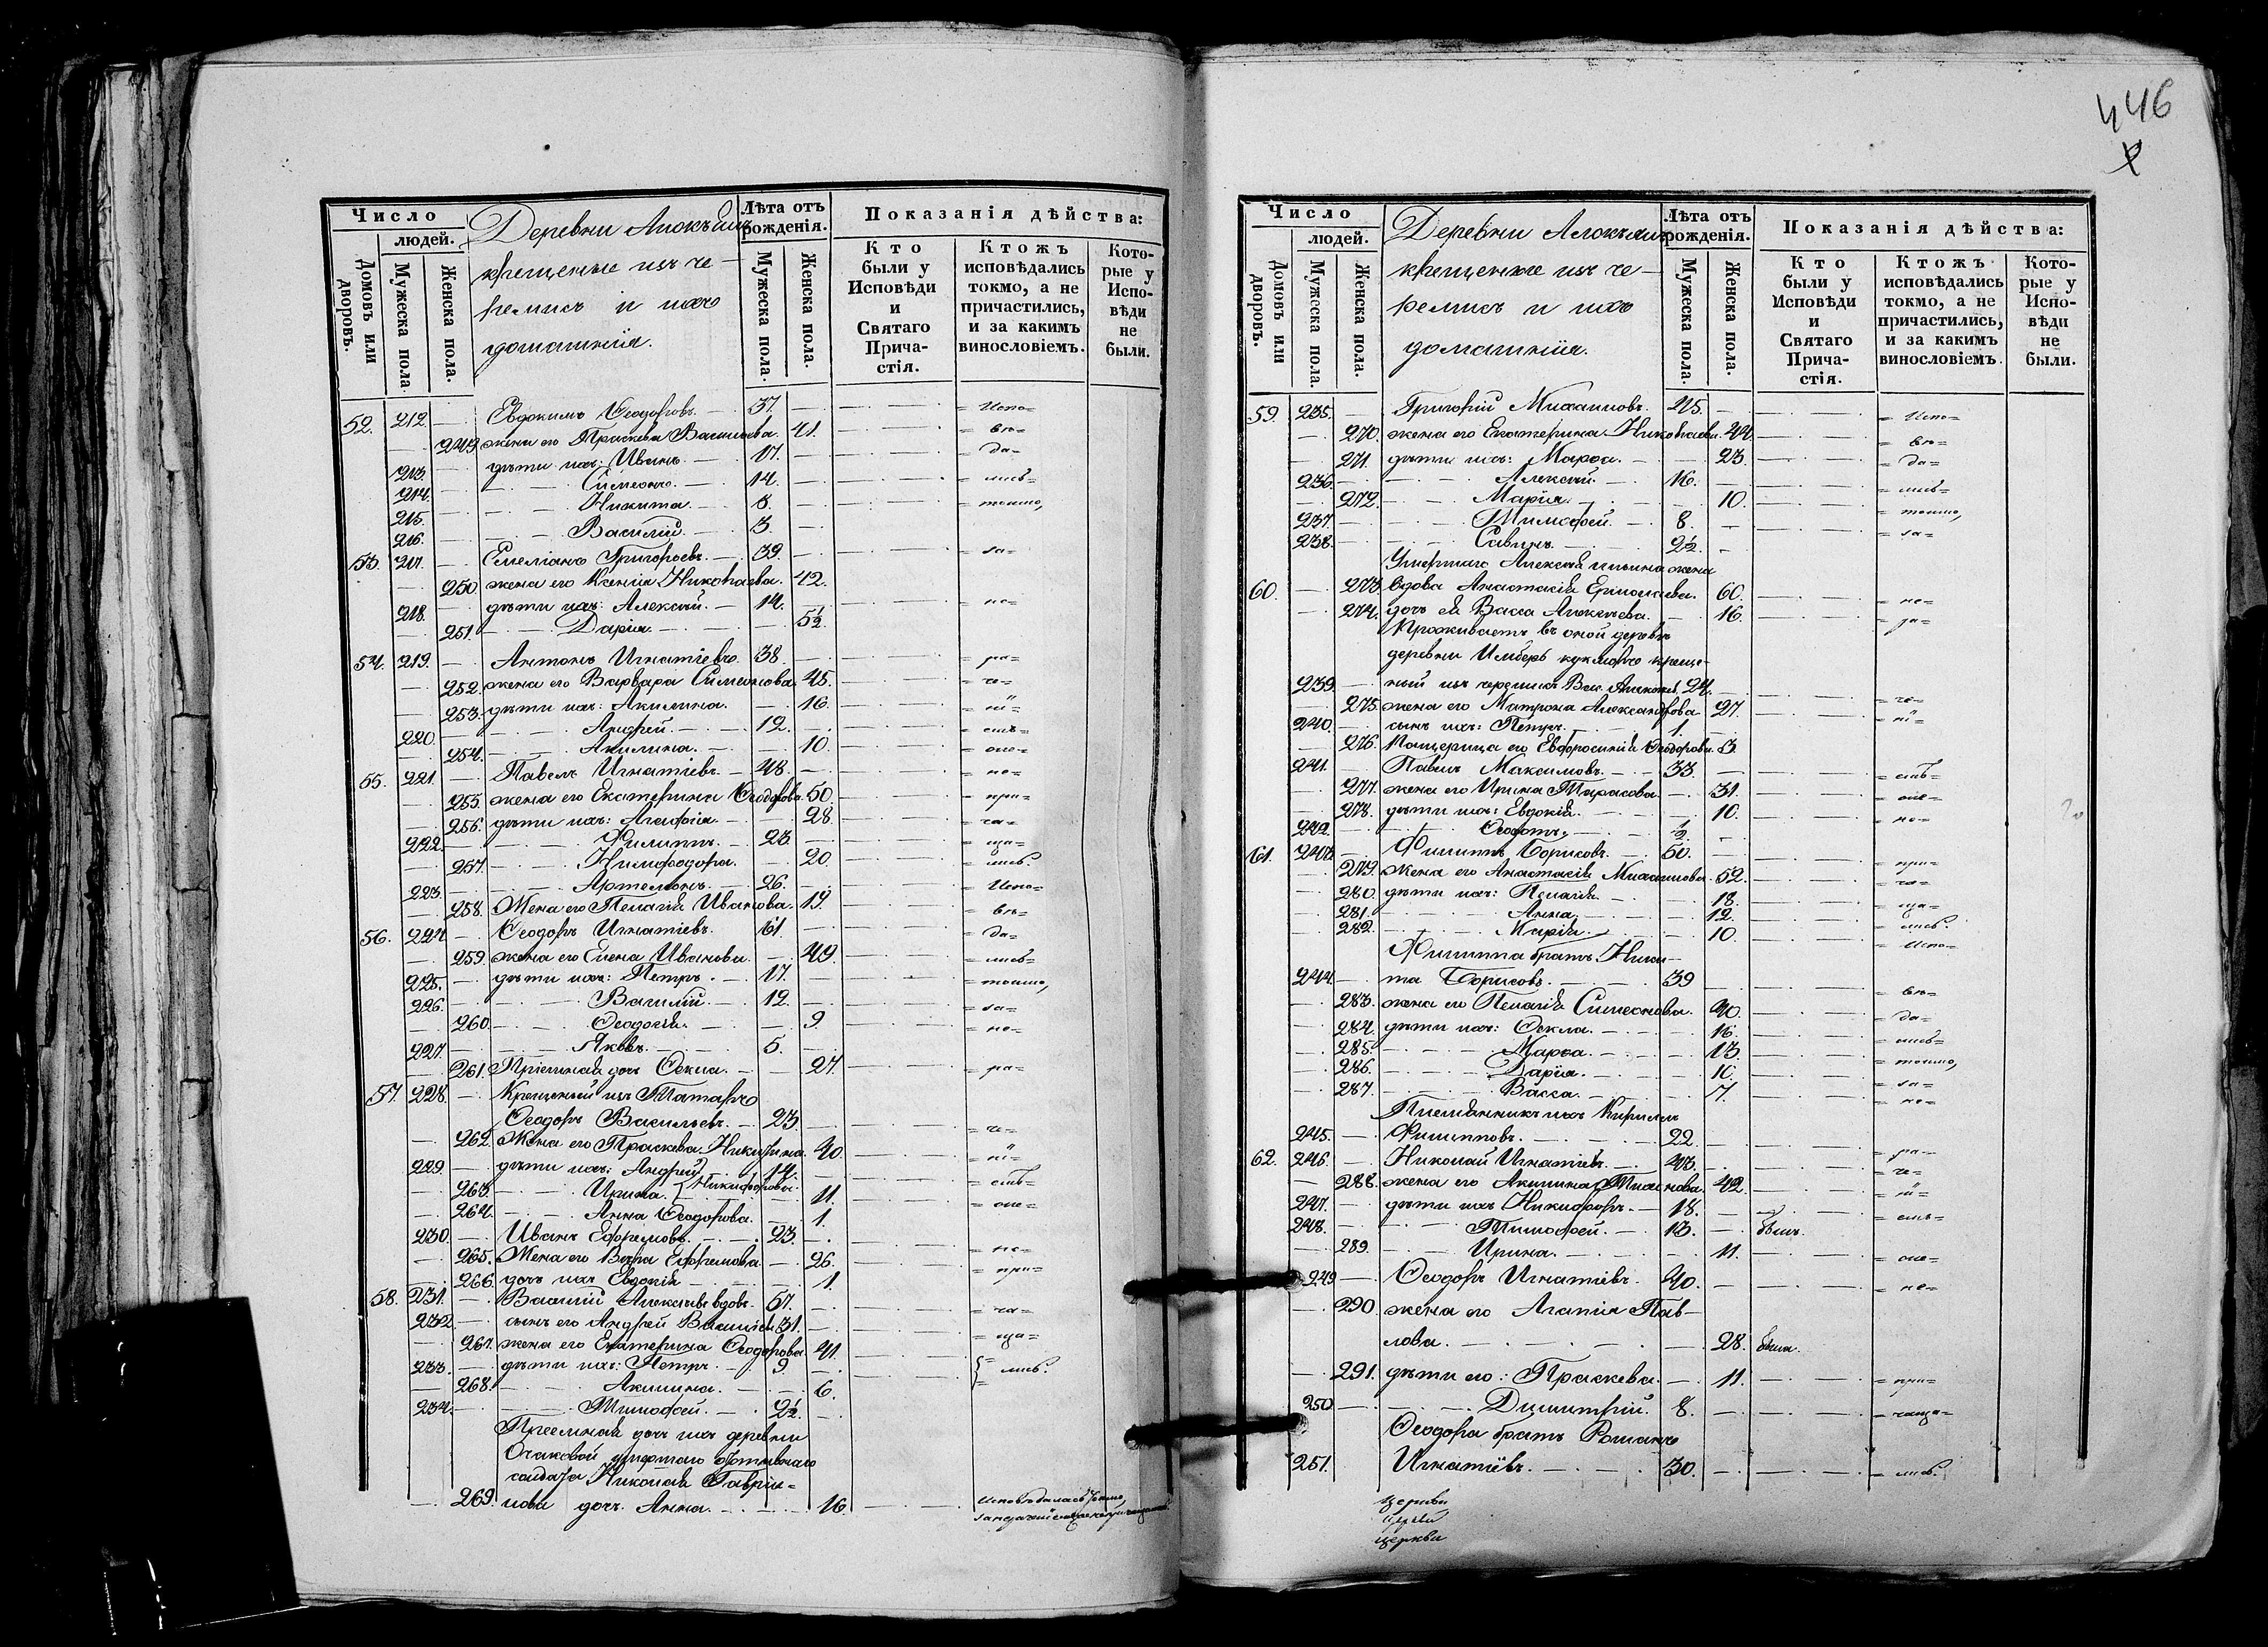 446
Число
людей.
Домовъ или дворовъ.
Мужеска пола.
Женска пола.
Деревни
крещеные изъ че-
ремисъ и ихъ
домашніи.
Лѣта отъ рожденія.
Мужеска пола.
Женска пола.
Показанія дѣйства:
Кто были у Исповѣди и Святаго Прича-стія.
Ктожъ исповѣдались токмо, а не причастились, и за какимъ винословіемъ.
Кото-рые у Испо-вѣди не были.
52. 212 Евдокимъ Ѳеодоровъ. 37. = Испо=
249 жена его Праскева Васильева. 41. = вѣ=
213. дѣти ихъ: Иванъ. 17. = да=
214. Симеонъ. 14. = лись=
215. Никита. 8. = токмо,
216. Василій. 3.
53. 217. Емеліанъ Григорьевъ. 39. = за=
250 жена его Ксенія Николаева. 42.
218. дѣти ихъ: Алексѣй. 14. = не=
251. Дарія. 5½.
54. 219. Антонъ Игнатіевъ. 38. = ра=
252. жена его Варвара Симеонова. 45. = че=
253. дѣти ихъ: Акилина. 16. = ні=
220. Андрей. 12. = емъ=
254. Акилина. 10. = оне=
55. 221. Павелъ Игнатіевъ. 48. = не=
255. жена его Екатерина Ѳеодорова. 50. = при=
256. дѣти ихъ: Агафія. 28. = ча=
222. Филиппъ. 23. = ща=
257. Нимфодора. 20. = лись.
223. Артемонъ. 26. = Испо=
258. Жена его Пелагія Иванова. 19. = вѣ=
56. 224 Ѳеодоръ Игнатіевъ. 61. = да=
259. жена его Елена Иванова. 49. = лись=
225. дѣти ихъ: Петръ. 17. = токмо,
226. Василій. 12. = за=
260. Ѳеодосія. 9. = не=
227. Яковъ. 5.
261. Пріемная дочь Ѳекла. 27. = ра=
57. 228. Крещеный изъ Татаръ
Ѳеодоръ Васильевъ. 23.
262. Жена его Праскева Никитина. 40. = че=
229. дѣти ихъ: Андрей 14. = ні=
263. Ирина. } Никифоровы. 11. = емъ=
264. Анна Ѳеодорова. 1. = оне=
230. Иванъ Ефремовъ. 23.
265. Жена его Вѣра Ефремова 26. = не=
266. дочь ихъ Евдокія 1. = при=
58. 231. Василій Алексѣевъ вдовъ. 57. = ча=
232. сынъ его Андрей Васильевъ 31.
267. жена его Екатерина Ѳеодорова 41. = ща=
233. дѣти ихъ: Петръ. 9. = лись.
268. Акилина. 6.
234. Тимофей. 2½.
Пріемная дочь ихъ деревни
умершаго
солдата Николая Гаври=
269. лова дочь Анна. 16. Исповѣдалась токмо,
Число
людей.
Домовъ или дворовъ.
Мужеска пола.
Женска пола.
Деревни
крещеные изъ че-
ремисъ и ихъ
домашніи.
Лѣта отъ рожденія.
Мужеска пола.
Женска пола.
Показанія дѣйства:
Кто были у Исповѣди и Святаго Прича-стія.
Ктожъ исповѣдались токмо, а не причастились, и за какимъ винословіемъ.
Кото-рые у Испо-вѣди не были.
59. 235. Григорій Михаиловъ. 45. = Испо=
270. жена его Екатерина Николаева. 44. = вѣ=
271. дѣти ихъ: Марѳа. 23. = да=
236. Алексѣй. 16. = лись=
272. Марія. 10. = токмо,
237. Тимофей. 8.
238. Савинъ. 2½. = за=
Умершаго Алексѣя Ильина жена
60. 273. вдова Анастасія Ермолаева. 60. = не=
274. дочь ея Васса Алексѣева. 16. = ра=
Проживаетъ въ оной деревнѣ
деревни
239. ный изъ черемисъ Вас. 24.
275. жена его Матрона Александрова 27. = че=
240. сынъ ихъ: Петръ. 1. = ні=
276. Падчерица его Евфросинія Ѳеодорова. 3
241. Павелъ Максимовъ. 33. = емъ=
277. жена его Ирина Тарасова 31. = оне=
278. дѣти ихъ: Евдокія. 10. = не=
242. Ѳеодотъ. ½.
61. 243. Филиппъ Борисовъ. 50. = при=
279. жена его Анастасія Михаилова. 52. = ча=
280. дѣти ихъ: Пелагія. 18. = ща=
281. Анна. 12. = лись.
282. Марія. 10. = Испо=
Филиппа братъ Ники-
244. та Борисовъ. 39
283. жена его Пелагія Симеонова. 40. = вѣ=
284. дѣти ихъ: Ѳекла. 16. = да=
285. Марѳа. 13. = лись=
286. Дарія. 10. = токмо,
287. Васса. 7. = за=
Племянникъ ихъ Кириллъ = не=
245. Филипповъ. 22.
62. 246. Николай Игнатіевъ. 43. = ра=
288. жена его Акилина 42. = че=
247. дѣти ихъ Никифоръ. 18. = ні=
248. Тимофей. 13. былъ. = емъ=
289. Ирина. 11. = оне=
249 Ѳеодоръ Игнатіевъ. 40. = не=
290. жена его Агапія Пав-
лова. 28. была.
291. дѣти его: Праскева. 11. = при=
250 Димитрій. 8. = чаща=
Ѳеодора братъ Романъ
251. Игнатіевъ. 30. = лись.
церкви
церкви